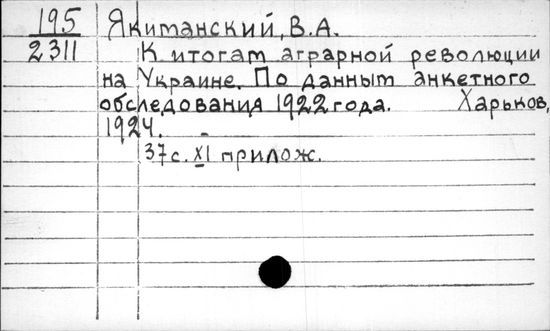 195 Якиманский, В.А.
2311 К итогам аграрной революции
на Украине. По данным анкетного
обследования 1922 года. Харьков,
1924. -
37с. XI прилож.